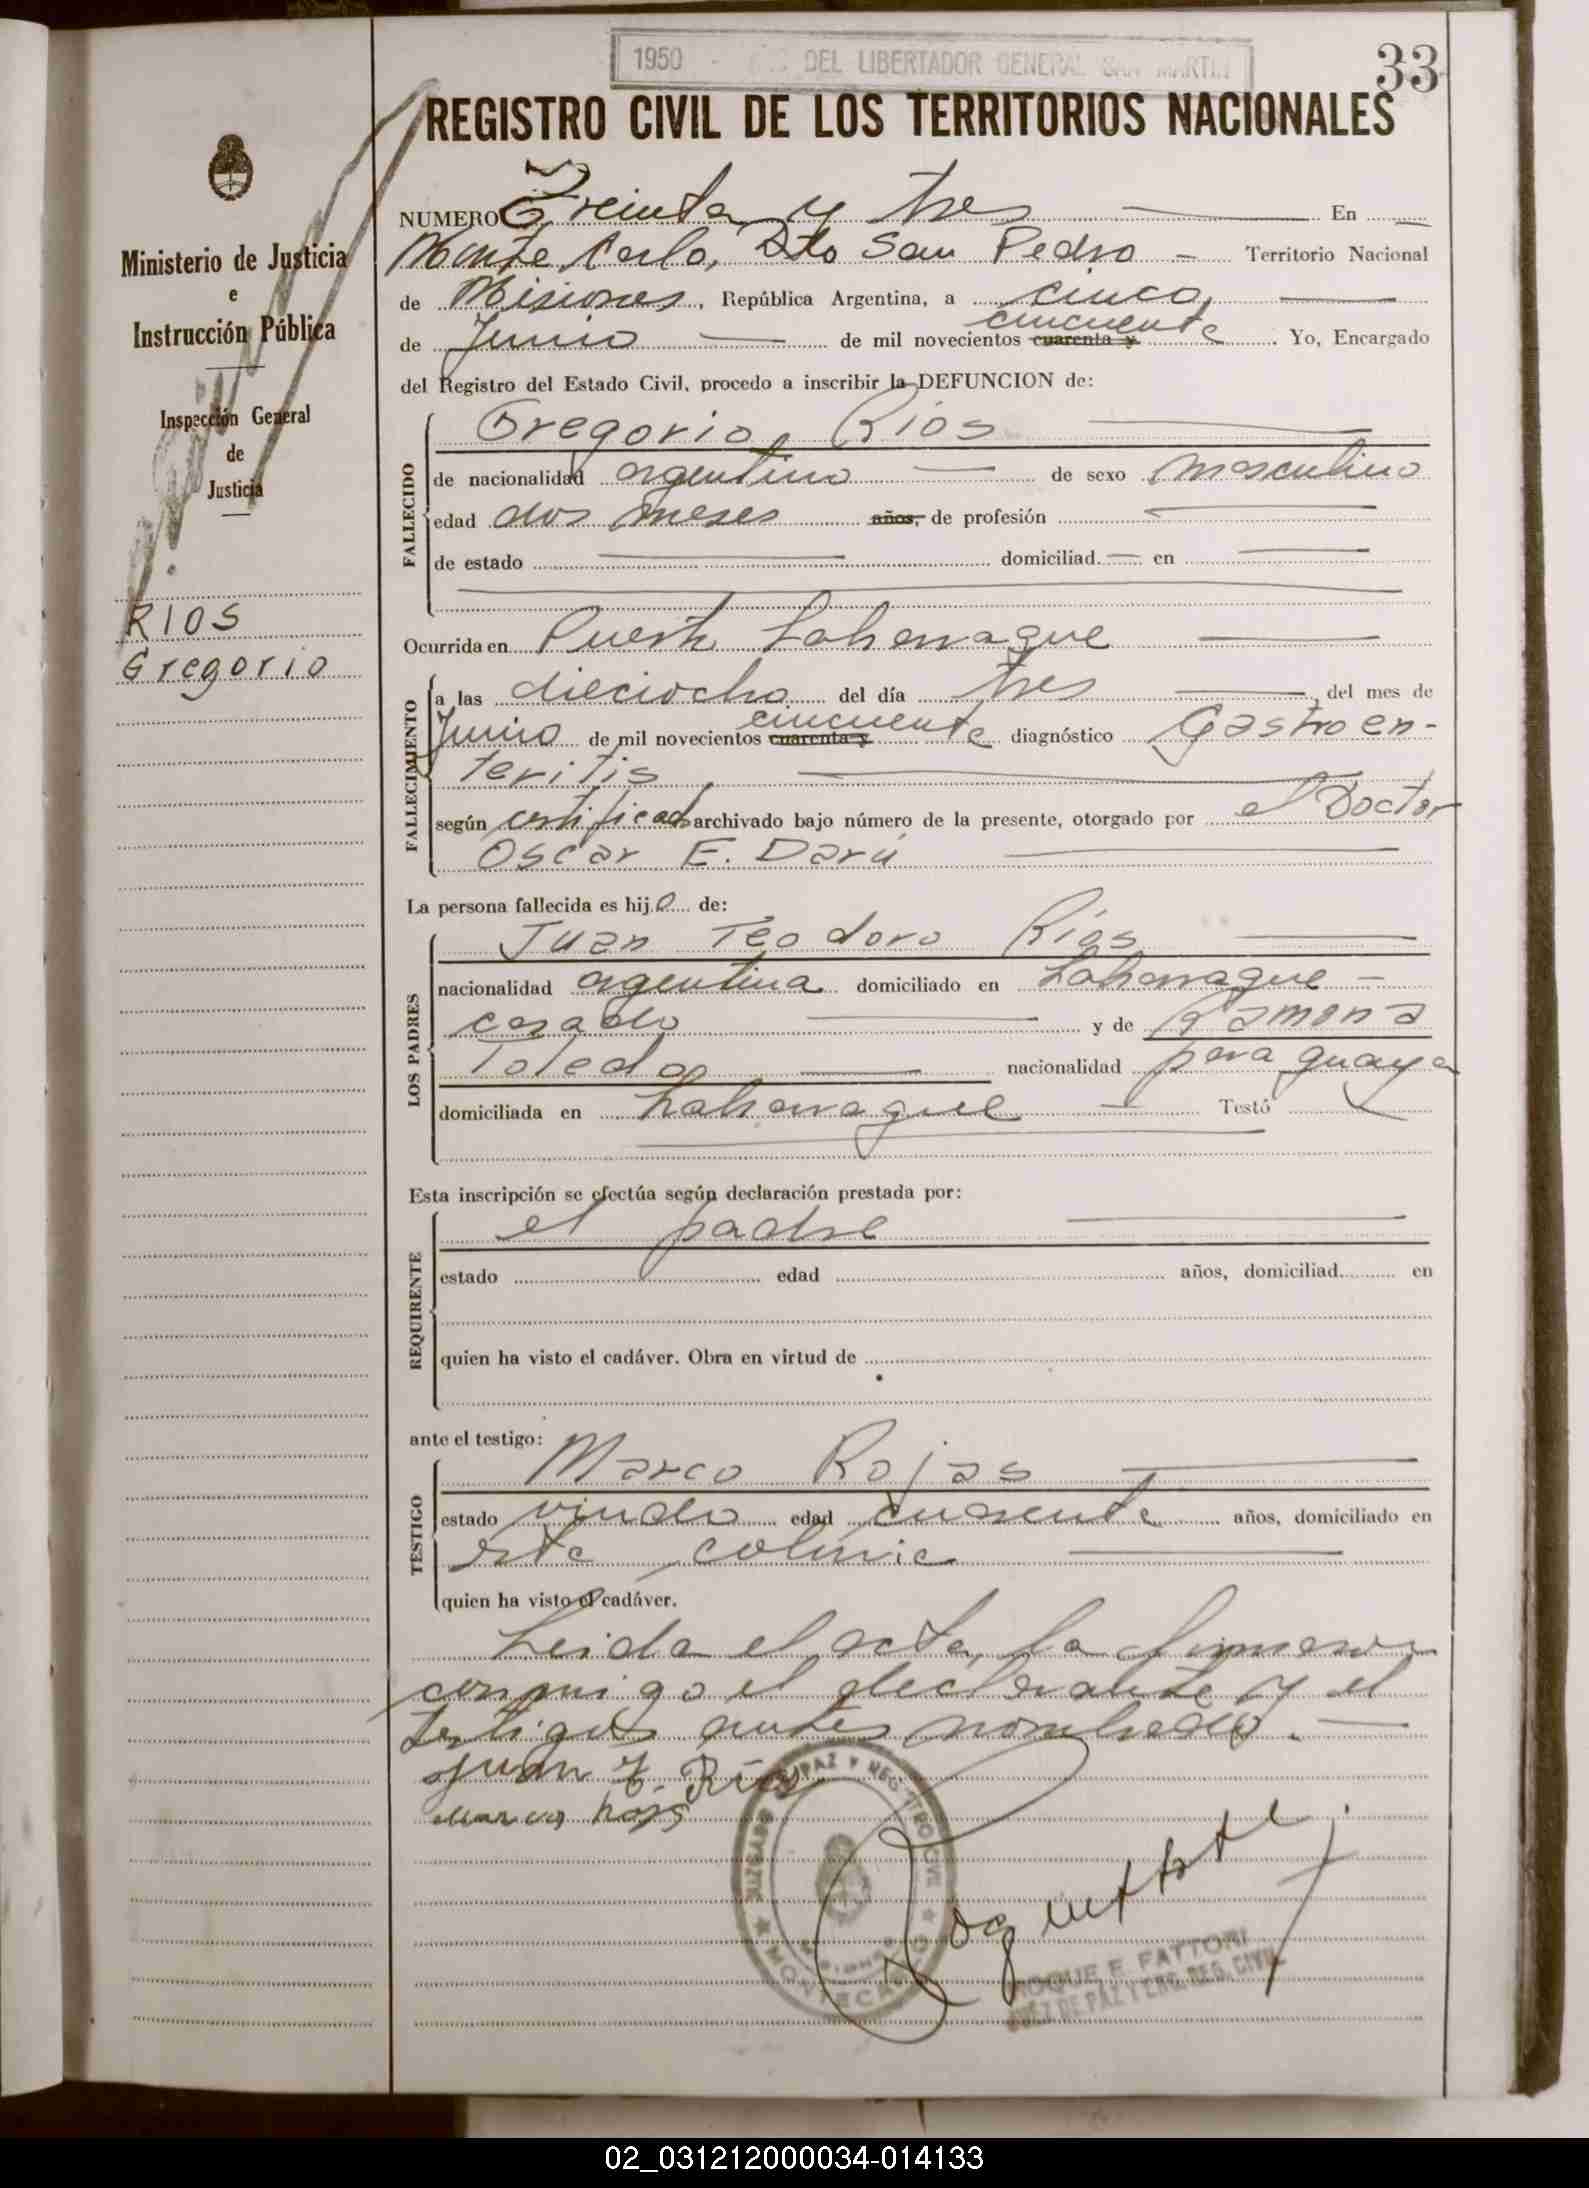 1950 - DEL LIBERTADOR GENERAL SAN MARTIN
33
REGISTRO CIVIL DE LOS TERRITORIOS NACIONALES
Ministerio de Justicia
e
Instrucción Pública
Inspección General
de
Justicia
RIOS
Gregorio
NUMERO Treinta y tres En
Monte Carlo, Dto San Pedro - Territorio Nacional
de Misiones, República Argentina, a cinco,
cincuenta
de Junio de mil novecientos cuarenta y . Yo, Encargado
del Registro del Estado Civil, procedo a inscribir la DEFUNCION de:
FALLECIDO
Gregorio Ríos
de nacionalidad argentino de sexo masculino
edad dos meses años, de profesión
de estado domiciliad. en
Ocurrida en Puerto Laharrague
FALLECIMIENTO
a las dieciocho del día tres, del mes de
cincuenta
Junio de mil novecientos cuarenta y diagnóstico Gastroen-
teritis
según certificado archivado bajo número de la presente, otorgado por el Doctor
Oscar E. Darú
La persona fallecida es hijo de:
LOS PADRES
Juan Teodoro Ríos
nacionalidad argentina domiciliado en Laharrague -
casado y de Ramona
Toledo nacionalidad paraguaya
domiciliada en Laharrague - Testó
Esta inscripción se efectúa según declaración prestada por:
REQUIRENTE
el padre
estado edad años, domiciliad. en
quien ha visto el cadáver. Obra en virtud de
ante el testigo:
TESTIGO
Marco Rojas
estado viudo edad cuarenta años, domiciliado en
esta colonia
quien ha visto el cadáver.
Leida el acta, la firmaron
conmigo el declarante y el
testigo antes nombrado. -
Juan T. Ríos
JUZGADO DE PAZ Y REGISTRO CIVIL
MISIONES
MONTECARLO
ROQUE E. FATTORI
JUEZ DE PAZ Y ENC. REG. CIVIL
02_031212000034-014133